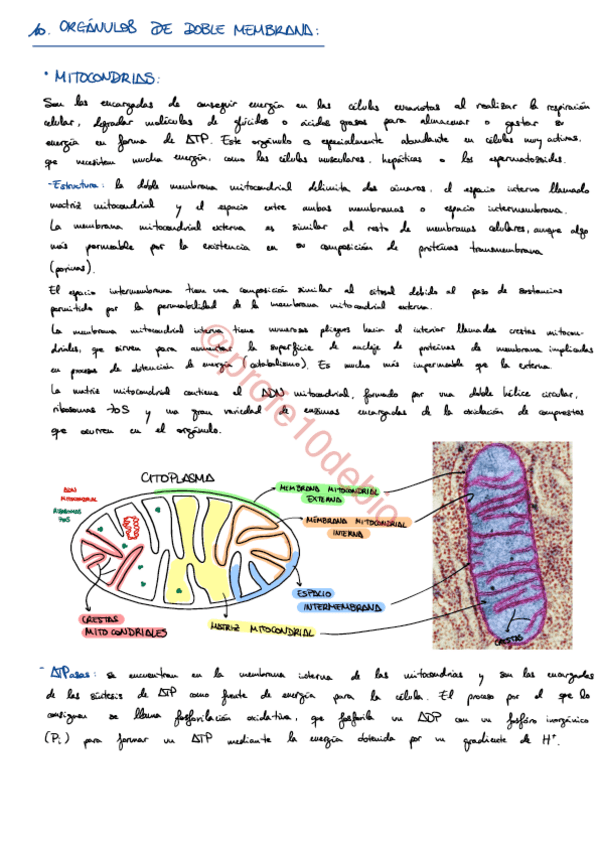 10. ORGÁNULOS DE DOBLE MEMBRANA:
• MITOCONDRIAS:
Son las encargadas de conseguir energía en las células eucariotas al realizar la respiración
celular, degradar moléculas de glúcidos o ácidos grasos para almacenar o gastar su
energía en forma de ATP. Este orgánulo es especialmente abundante en células muy activas,
que necesitan mucha energía, como las células musculares, hepáticas o los espermatozoides.
-Estructura: la doble membrana mitocondrial delimita dos cámaras, el espacio interno llamado
matriz mitocondrial y el espacio entre ambas membranas o espacio intermembrana.
La membrana mitocondrial externa es similar al resto de membranas celulares, aunque algo
más permeable por la existencia en su composición de proteínas transmembrana
(porinas).
El espacio intermembrana tiene una composición similar al citosol debido al paso de sustancias
permitido por la permeabilidad de la membrana mitocondrial externa.
La membrana mitocondrial interna tiene numerosos pliegues hacia el interior llamados crestas mitocon-
driales, que sirven para aumentar la superficie de anclaje de proteínas de membrana implicadas
en procesos de obtención de energía (catabolismo). Es mucho más impermeable que la externa.
La matriz mitocondrial contiene el ADN mitocondrial, formado por una doble hélice circular,
ribosomas 70S y una gran variedad de enzimas encargadas de la oxidación de compuestos
que ocurren en el orgánulo.
@profe10debio
CITOPLASMA
ADN
MITOCONDRIAL
RIBOSOMAS
70S
MEMBRANA MITOCONDRIAL
EXTERNA
MEMBRANA MITOCONDRIAL
INTERNA
ESPACIO
INTERMEMBRANA
CRESTAS
MITOCONDRIALES
MATRIZ MITOCONDRIAL
CRESTAS
- ATPasas: se encuentran en la membrana interna de las mitocondrias y son las encargadas
de las síntesis de ATP como fuente de energía para la célula. El proceso por el que lo
consiguen se llama fosforilación oxidativa, que fosforila un ADP con un fosfóro inorgánico
(Pi) para formar un ATP mediante la energía obtenida por un gradiente de H⁺.